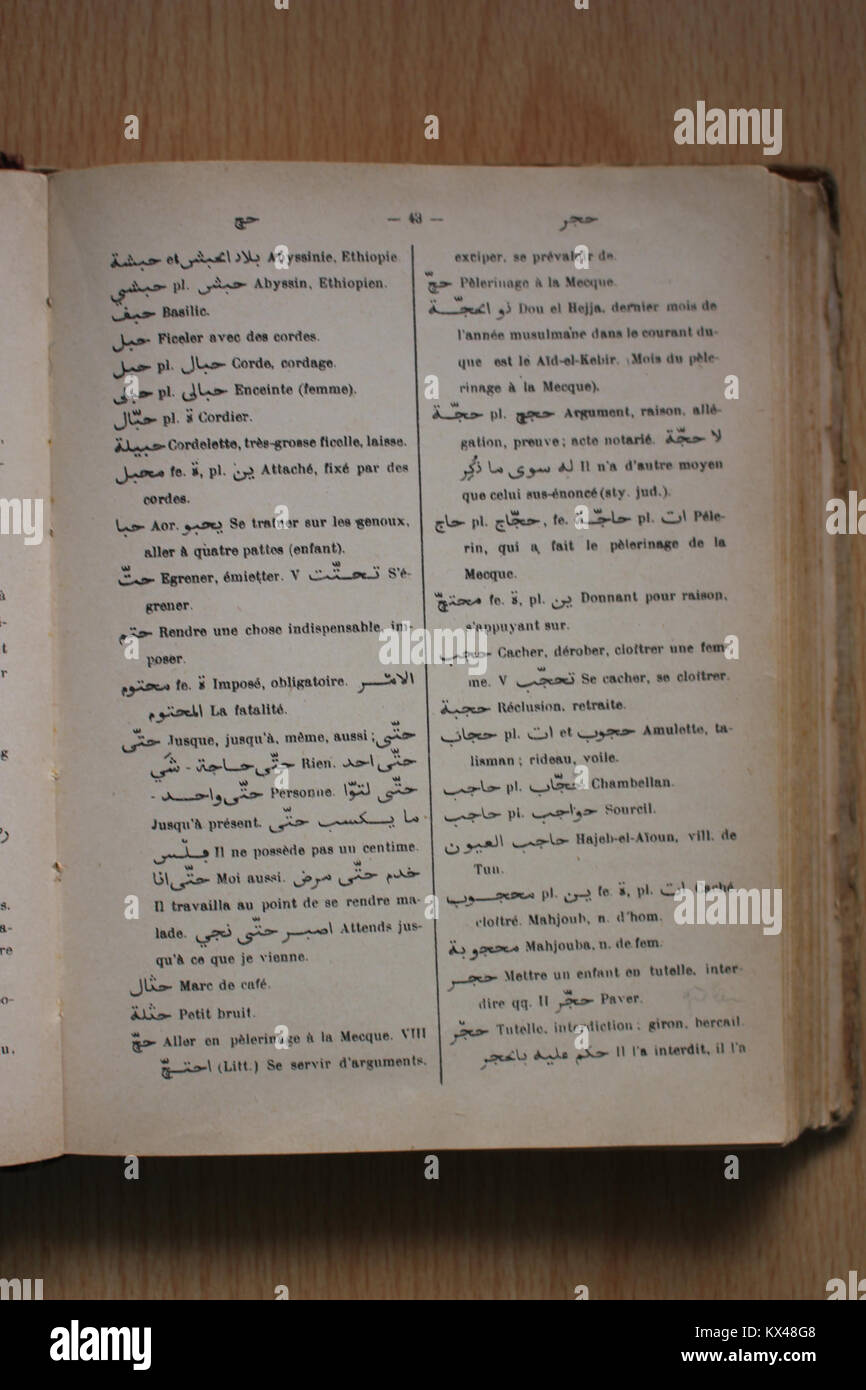 حج — 43 — حجر
حبشة et بلاد الحبش Abyssinie, Ethiopie
حبشي pl. حبش Abyssin, Ethiopien.
حبق Basilic.
حبل Ficeler avec des cordes.
حبل pl. حبال Corde, cordage.
حبلى pl. حبالى Enceinte (femme).
حبّال pl. ة Cordier.
حبيلة Cordelette, très-grosse ficelle, laisse.
محبل fe. ة, pl. ين Attaché, fixé par des
cordes.
حبا Aor. يحبو Se traîner sur les genoux,
aller à quatre pattes (enfant).
حتّ Egrener, émietter. V تحتّت S'é-
grener.
حتم Rendre une chose indispensable, im-
poser.
محتوم fe. ة Imposé, obligatoire. الامر
المحتوم La fatalité.
حتّى Jusque, jusqu'à, même, aussi; حتّى
حتّى حاجة - شي Rien. حتّى احد
- حتّى واحد Personne. حتّى لتوّا
Jusqu'à présent. ما يكسب حتّى
فلس Il ne possède pas un centime.
حتّى انا Moi aussi. خدم حتّى مرض
Il travailla au point de se rendre ma-
lade. اصبر حتّى نجي Attends jus-
qu'à ce que je vienne.
حثال Marc de café.
حثلة Petit bruit.
حجّ Aller en pèlerinage à la Mecque. VIII
احتجّ (Litt.) Se servir d'arguments,
exciper, se prévaloir de.
حجّ Pèlerinage à la Mecque.
ذو الحجّة Dou el Hejja, dernier mois de
l'année musulmane dans le courant du-
que est le Aïd-el-Kebir. (Mois du pèle-
rinage à la Mecque).
حجّة pl. حجج Argument, raison, allé-
gation, preuve; acte notarié. لا حجّة
له سوى ما ذُكِر Il n'a d'autre moyen
que celui sus-énoncé (sty. jud.).
حاج pl. حجّاج, fe. حاجّة pl. ات Péle-
rin, qui a fait le pèlerinage de la
Mecque.
محتجّ fe. ة, pl. ين Donnant pour raison,
s'appuyant sur.
حجب Cacher, dérober, cloîtrer une fem-
me. V تحجّب Se cacher, se cloîtrer.
حجبة Réclusion, retraite.
حجاب pl. ات et حجوب Amulette, ta-
lisman; rideau, voile.
حاجب pl. حجّاب Chambellan.
حاجب pl. حواجب Sourcil.
حاجب العيون Hajeb-el-Aïoun, vill. de
Tun.
محجوب pl. ين fe. ة, pl. ات Caché,
cloîtré. Mahjoub, n. d'hom.
محجوبة Mahjouba, n. de fem.
حجر Mettre un enfant en tutelle, inter-
dire qq. II حجّر Paver.
حجر Tutelle, interdiction; giron, bercail.
حكم عليه بالحجر Il l'a interdit, il l'a
alamy
Image ID: KX48G8
www.alamy.com